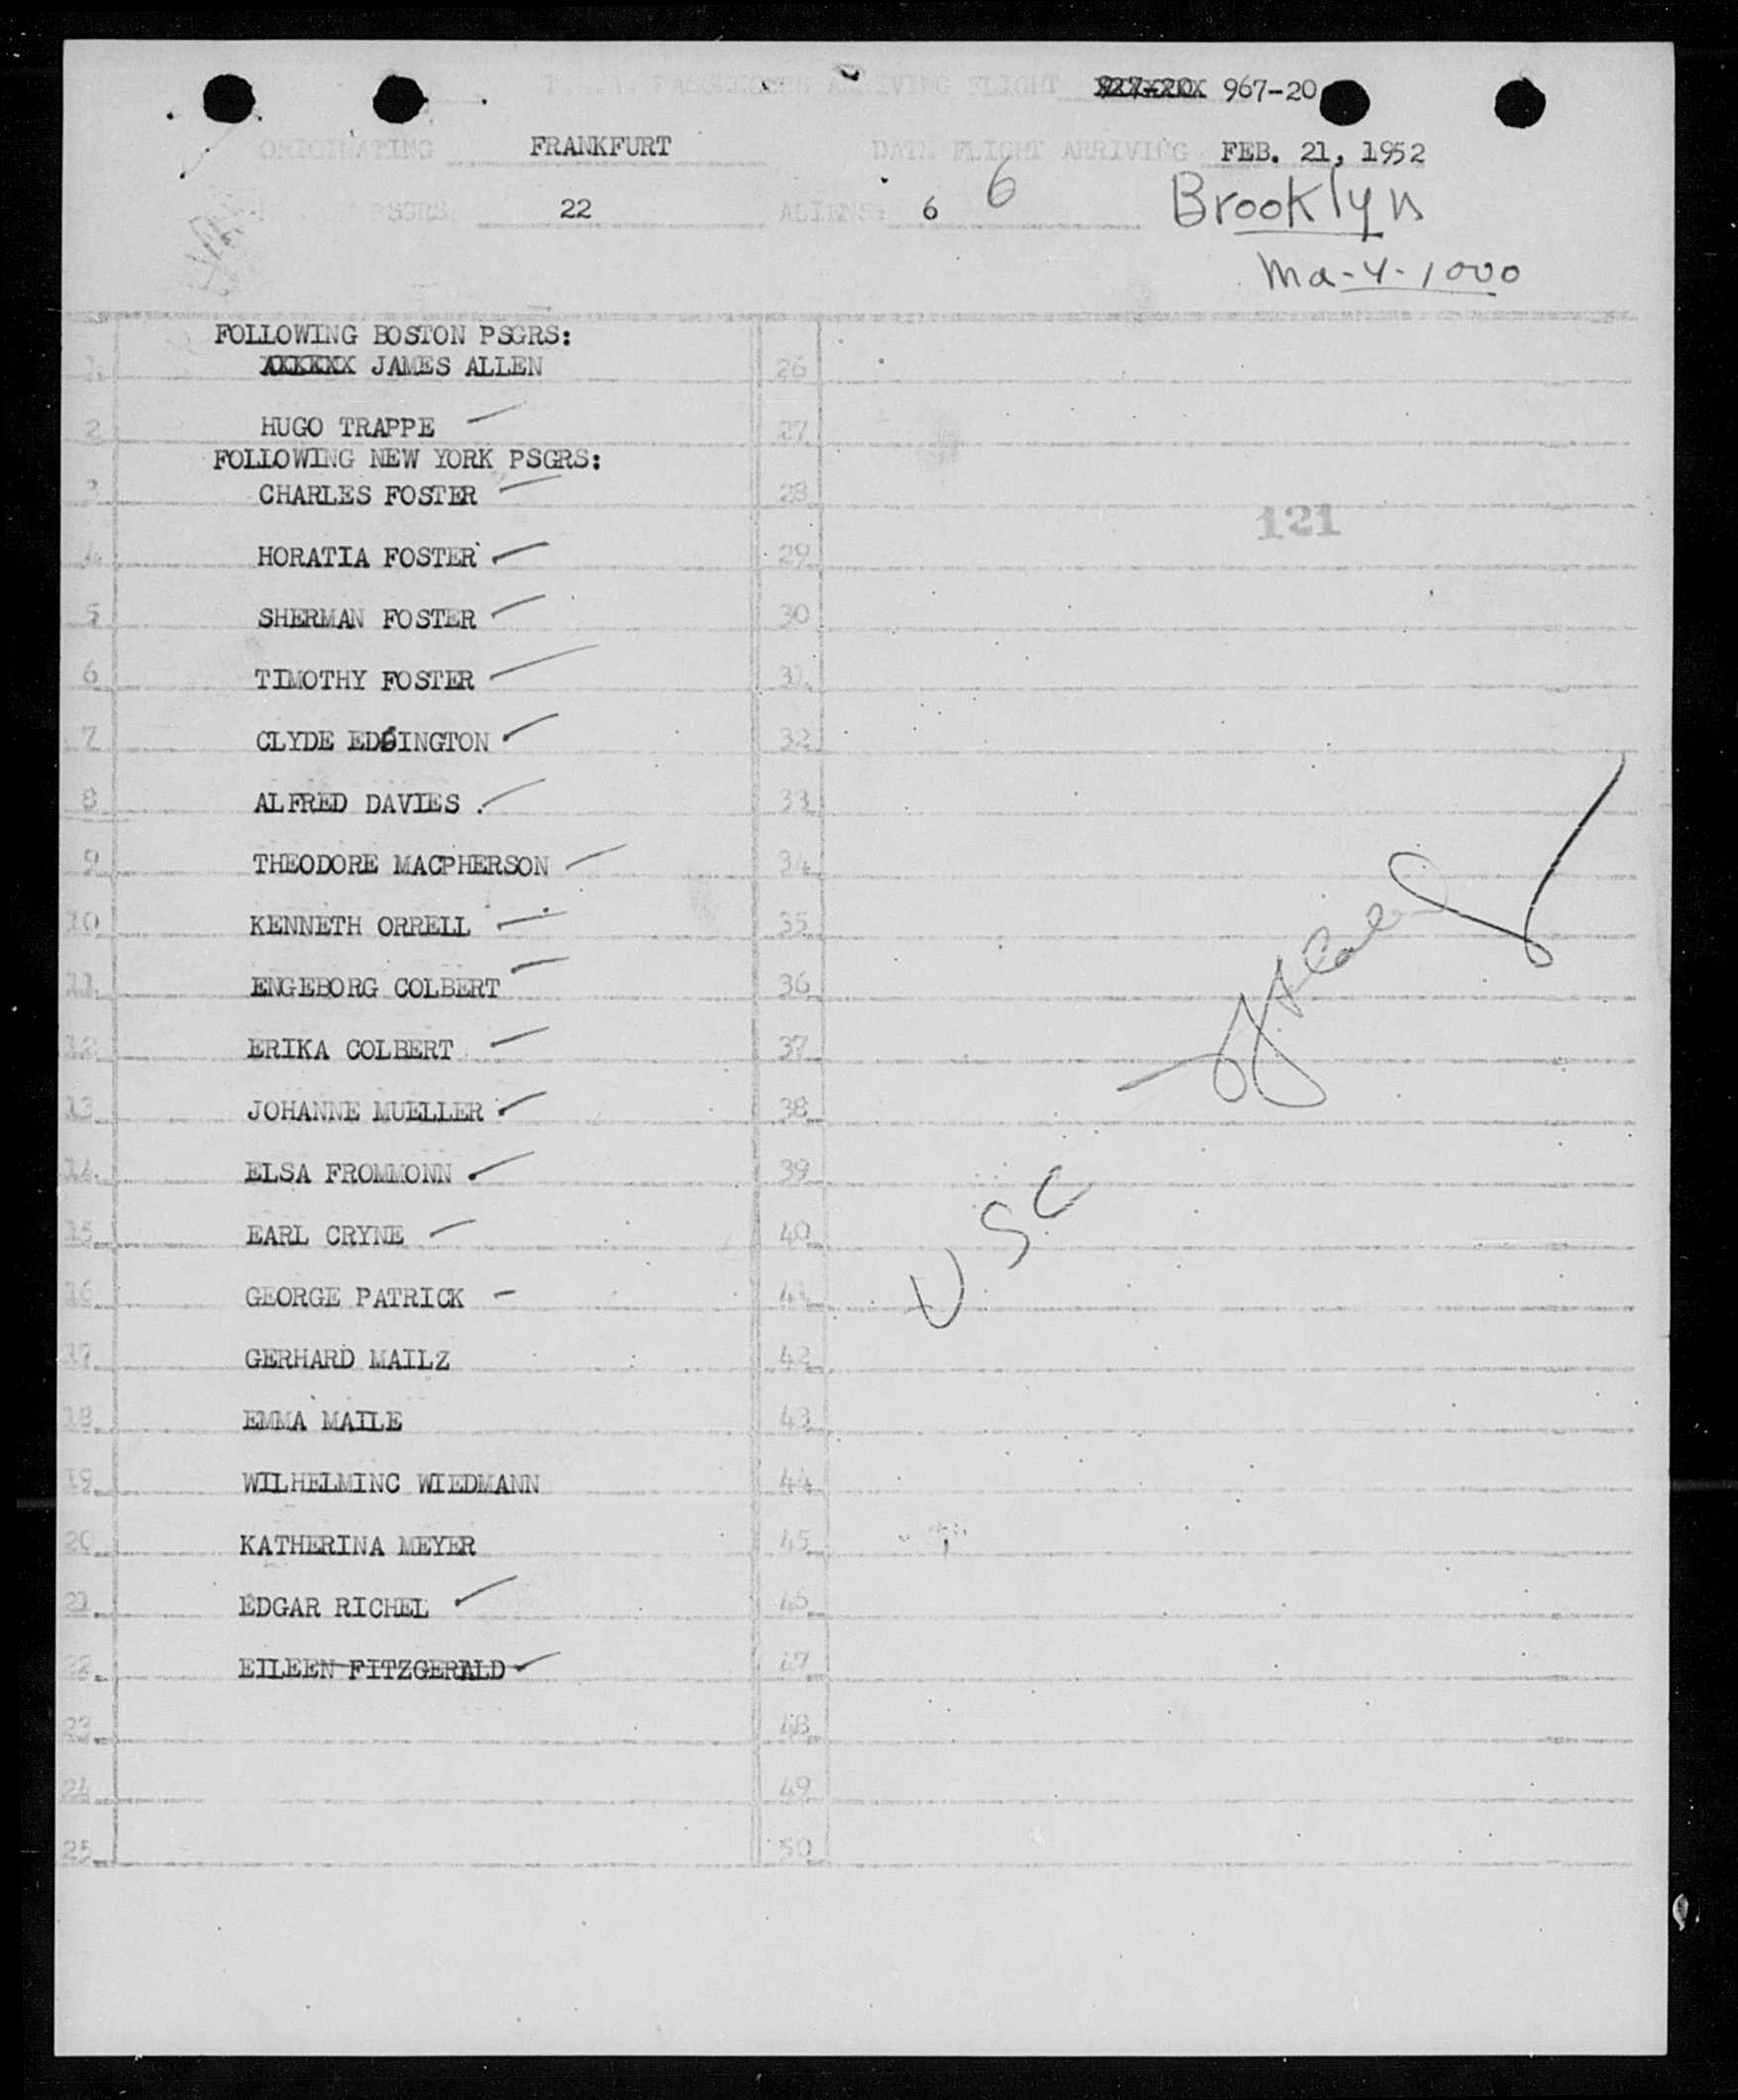 PASSENGERS ARRIVING FLIGHT 967-20
ORIGINATING FRANKFURT DATE FLIGHT ARRIVING FEB. 21, 1952
PSGRS. 22 ALIENS: 6 6 Brooklyn
Ma-4-1000
FOLLOWING BOSTON PSGRS:
1. JAMES ALLEN 26
2. HUGO TRAPPE 27
FOLLOWING NEW YORK PSGRS:
3. CHARLES FOSTER 28
121
4. HORATIA FOSTER 29
5. SHERMAN FOSTER 30
6. TIMOTHY FOSTER 31.
7. CLYDE EDGINGTON 32
8. ALFRED DAVIES 33
9. THEODORE MACPHERSON 34
10. KENNETH ORRELL 35
11. ENGEBORG COLBERT 36
12. ERIKA COLBERT 37
13. JOHANNE MUELLER 38
14. ELSA FROMMONN 39
U.S.C
15. EARL CRYNE 40
16. GEORGE PATRICK 41
17. GERHARD MAILZ 42
18. EMMA MAILE 43
19. WILHELMINC WIEDMANN 44
20. KATHERINA MEYER 45
21. EDGAR RICHEL 46
22. EILEEN FITZGERALD 47
23. 48
24. 49
25. 50